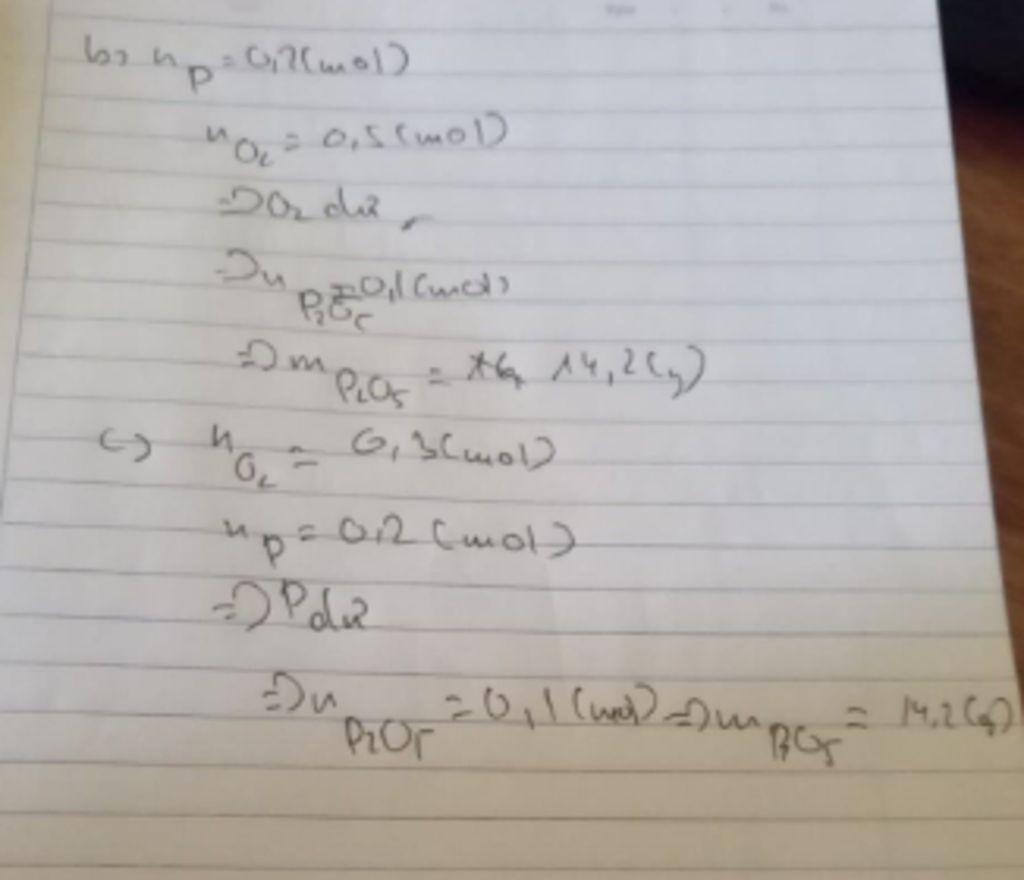 b) nP = 0,2(mol)
nO2 = 0,5(mol)
=> O2 dư
=> nP2O5 = 0,1(mol)
=> mP2O5 = 14,2(g)
c) nO2 = 0,3(mol)
nP = 0,2(mol)
=> P dư
=> nP2O5 = 0,1(mol) => mP2O5 = 14,2(g)